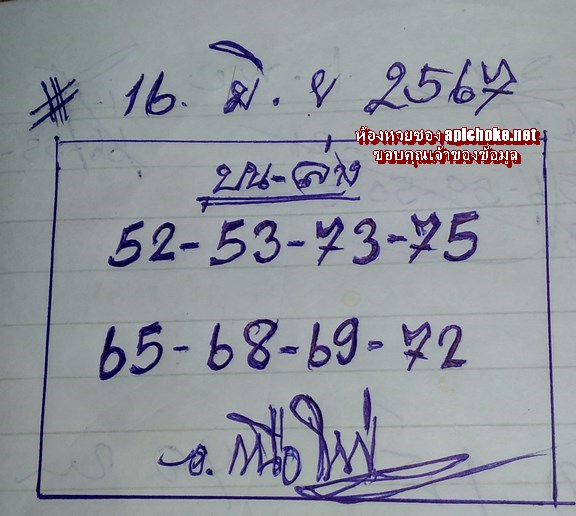 # 16. มิ. ย 2567
ห้องหวยซอง apichoke.net
ขอบคุณเจ้าของข้อมูล
บน-ล่าง
52-53-73-75
65-68-69-72
อ.